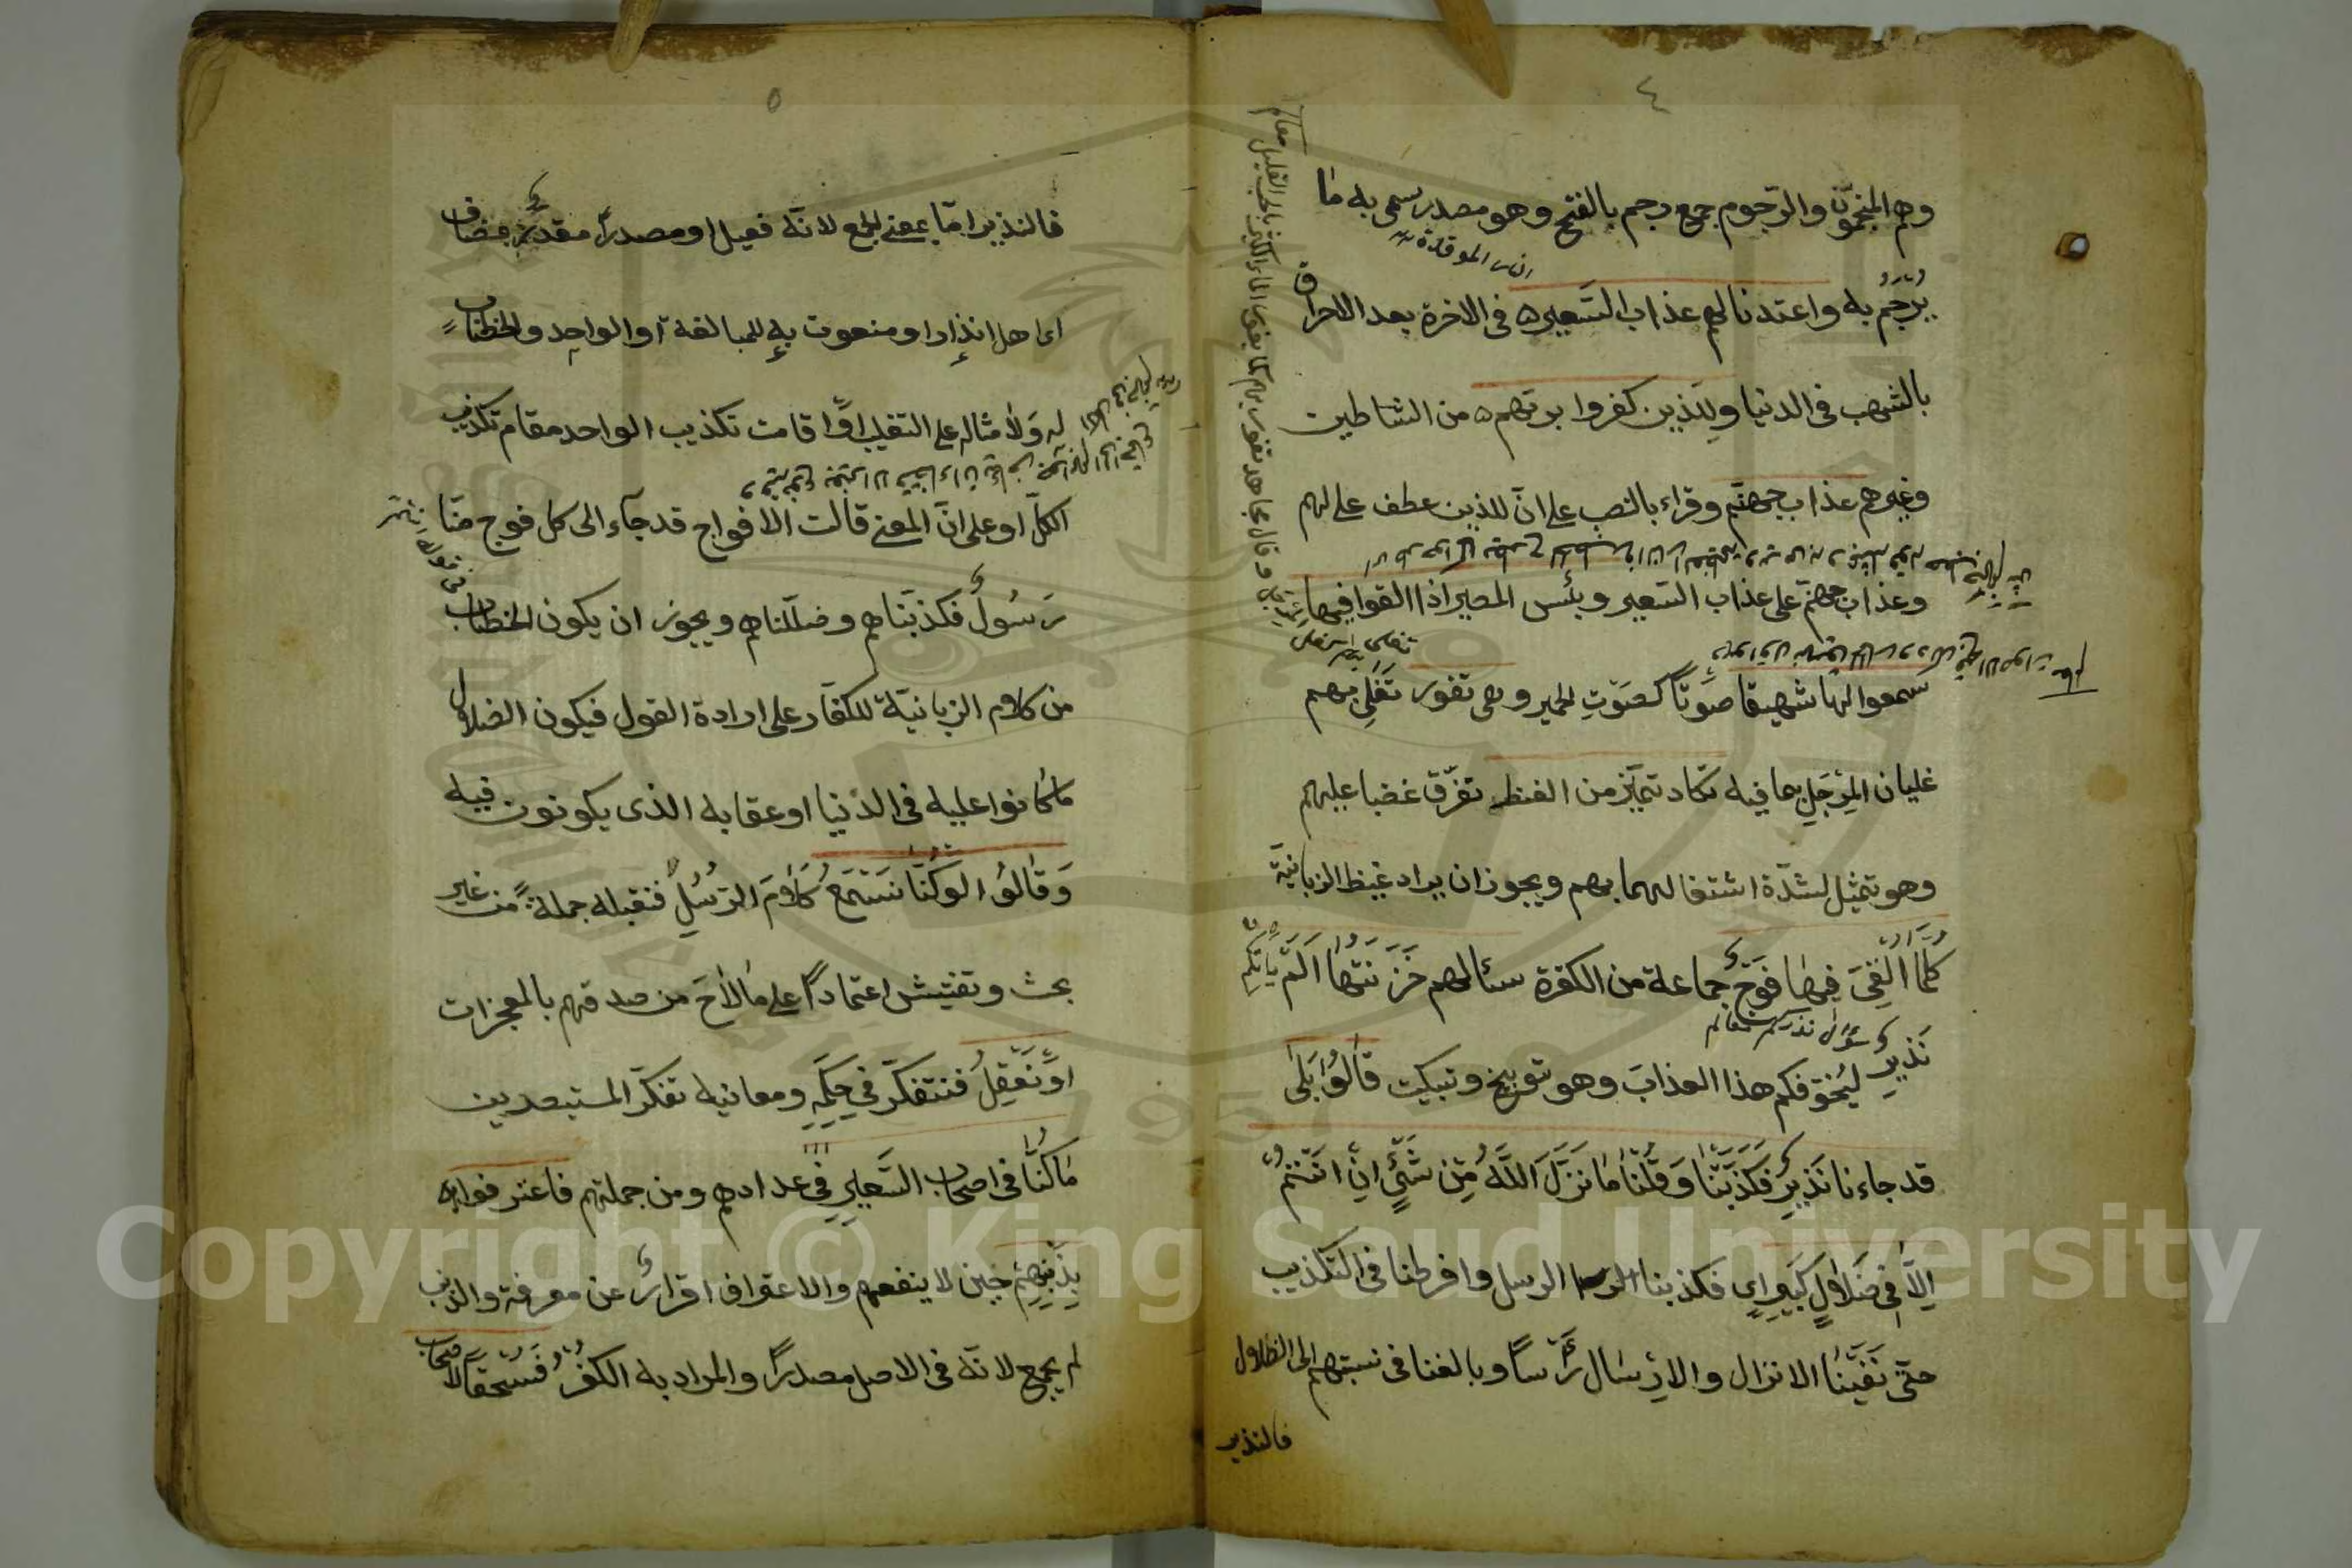 ٤
وهم المنجمون والرّجوم جمع رجم بالفتح وهو مصدر سمى به ما
النار الموقدة
يُرْجَمُ به واعتدنا لهم عذاب السّعير في الاخرة بعد الاحراق
بالشهب في الدنيا وللّذين كفروا بربّهم من الشاطين
وغيرهم عذاب جهنّم وقراء بالنصب على انّ للذين عطف على لهم
وعذاب جهنم على عذاب السّعير وبئس المصير اذا القوا فيها
سمعوا لها شهيقا صَوتاً كصَوْتِ الحمير وهى تفور تَغْلِى بهم
غليان المِرْجَلِ بما فيه تكاد تميّز من الغيظ تفرّق غضبا عليهم
وهو تمثيل لشدّة اشتعالها بهم ويجوز ان يراد غيظ الزبانيّة
كُلَّمَا اُلْقِىَ فِيهَا فَوْجٌ جماعة من الكفرة سئالهم خَزَنَتُهَا اَلَمْ يَاْتِكُمْ
نَذِيرٌ ليُخَوّفكم هذا العذابَ وهو توبيخ وتبكيت قالُوا بَلَى
قد جاءنا نَذِيرٌ فَكَذَّبْنَا وَقُلْنَا مَا نَزَّلَ اللّٰهُ مِنْ شَيْئٍ اِنْ اَنْتُمْ
اِلَّا فِى ضَلَالٍ كَبِيرٍ اى فكذبنا الرسل وافرطنا فى التكذيب
حتّى نَفَيْنَا الانزال والاِرْسَال رَأْساً وبالغنا فى نسبتهم الى الضلال
فالنذير
وقال مجاهد تفور بهم كما يفور الماء الكثير بالحب القليل معالم
٥
فالنذير امّا بمعنى الجمع لانّه فعيل او مصدر مقدّر بمضاف
اى اهل انذار او منعوت به للمبالغة او الواحد والخطاب
له وَلاَمثاله على التغليب اوْ اقامت تكذيب الواحد مقام تكذيب
الكلّ او على انّ المعنى قالت الافواج قد جاء الى كل فوج منّا
رَسُولٌ فكذّبناهم وضلّلناهم ويجوز ان يكون الخطاب
من كلام الزبانيّة للكفّار على ارادة القول فيكون الضلال
ما كانوا عليه فى الدّنيا او عقابه الذى يكونون فيه
وَقَالُوا لَوْ كُنَّا نَسْتَمِعُ كَلَامَ الرّسُلِ فنقبله جملةً من غير
بحث وتفتيش اعتماداً على ما لاَحَ من صدقهم بالمعجزات
اوْ نَعْقِلُ فنتفكّر فى حِكَمِهِ ومعانيه تفكّر المستبصرين
مَا كُنَّا فى اصحاب السَّعِيرِ فِى عدادهم ومن جملتهم فاعترفوا
بِذَنْبِهِمْ حين لا ينفعهم والاعتراف اقرارٌ عن معرفة والذنب
لم يجمع لانّه فى الاصل مصدرٌ والمراد به الكفْرُ فَسُحْقاً لاصحاب